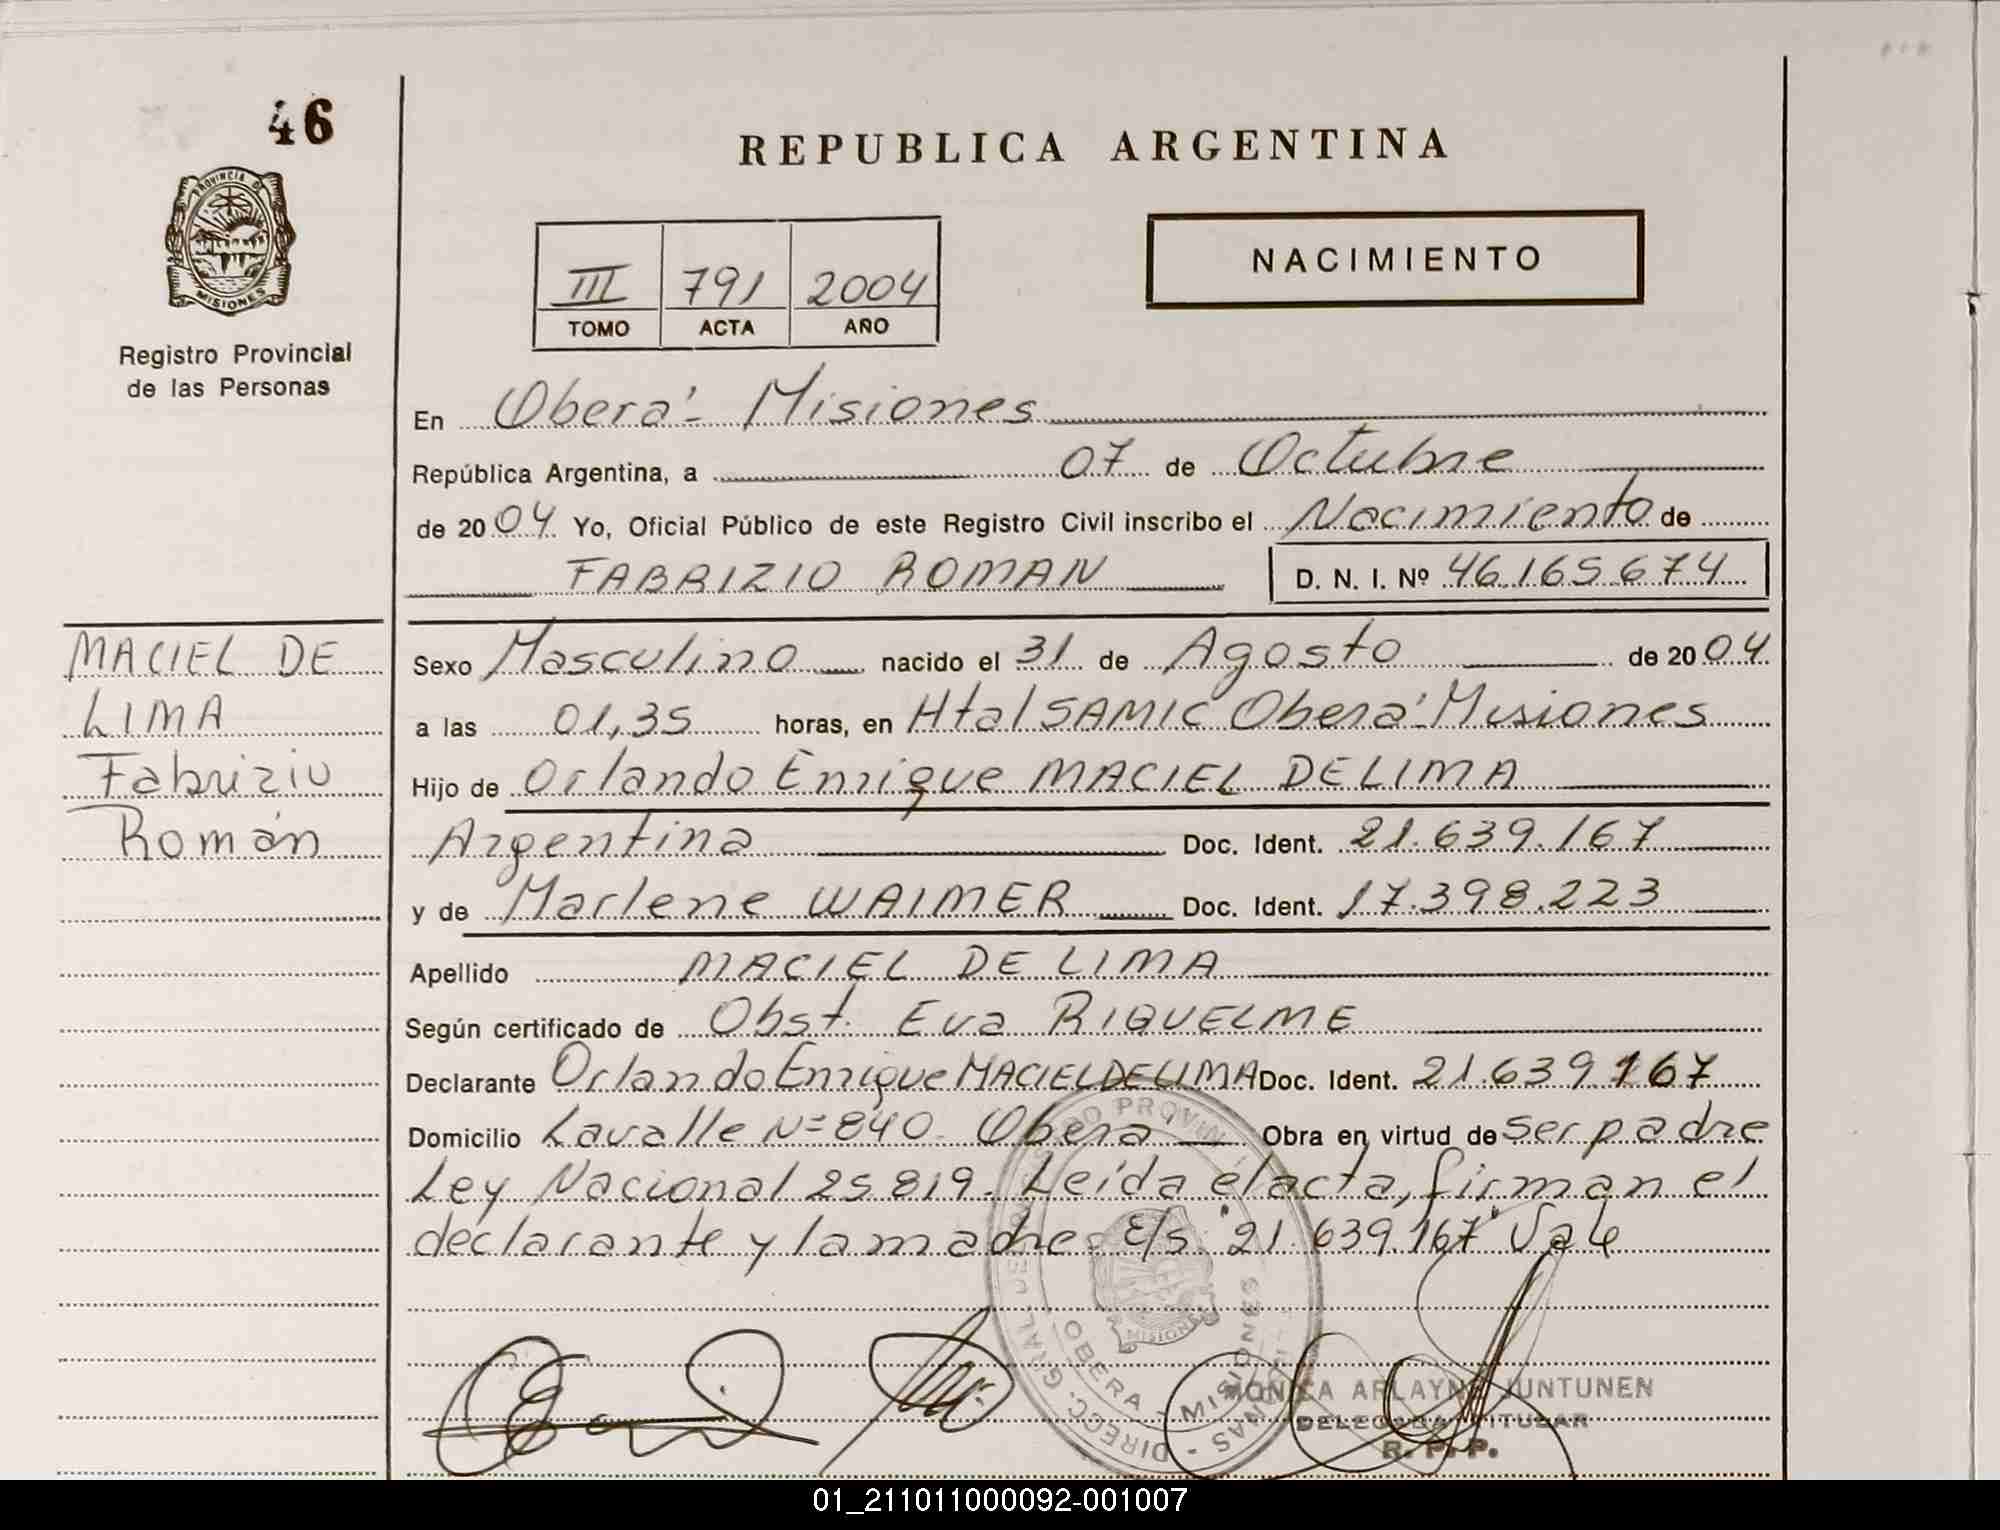 46
PROVINCIA DE
MISIONES
Registro Provincial
de las Personas
REPUBLICA ARGENTINA
III 791 2004
TOMO ACTA AÑO
NACIMIENTO
En Oberá - Misiones
República Argentina, a 07 de Octubre
de 2004 Yo, Oficial Público de este Registro Civil inscribo el Nacimiento de
FABRIZIO ROMAN D. N. I. Nº 46.165.674
MACIEL DE
LIMA
Fabrizio
Román
Sexo Masculino nacido el 31 de Agosto de 2004
a las 01,35 horas, en Htal SAMIC Oberá - Misiones
Hijo de Orlando Enrique MACIEL DE LIMA
Argentina Doc. Ident. 21.639.167
y de Marlene WAIMER Doc. Ident. 17.398.223
Apellido MACIEL DE LIMA
Según certificado de Obst. Eva RIQUELME
Declarante Orlando Enrique MACIEL DE LIMA Doc. Ident. 21.639.167
Domicilio Lavalle Nº 840. Oberá Obra en virtud de ser padre
Ley Nacional 25819. Leída el acta, firman el
declarante y la madre. E/s "21.639.167" Vale
OBERA - MISIONES
MISIONES
MONICA ARLAYNE JUNTUNEN
DELEGADA TITULAR
R. P. P.
01_211011000092-001007